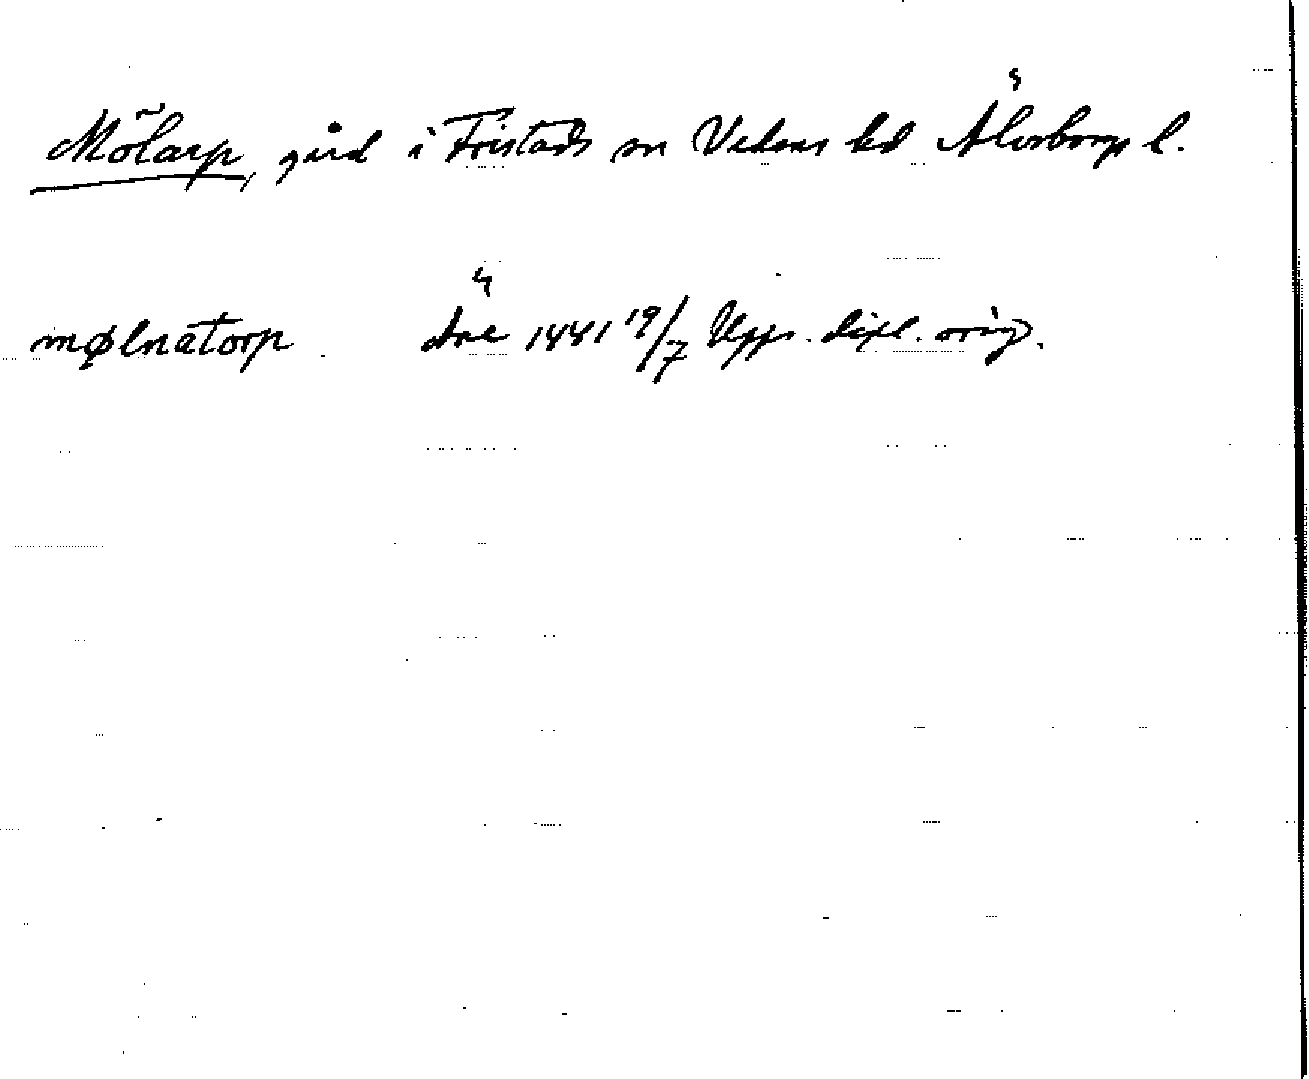 Mölarp, gård i Fristads sn Vedens hd Älvsborgs l.
mølnatorp Ärle 1441 19/7 Upps. dipl. orig.